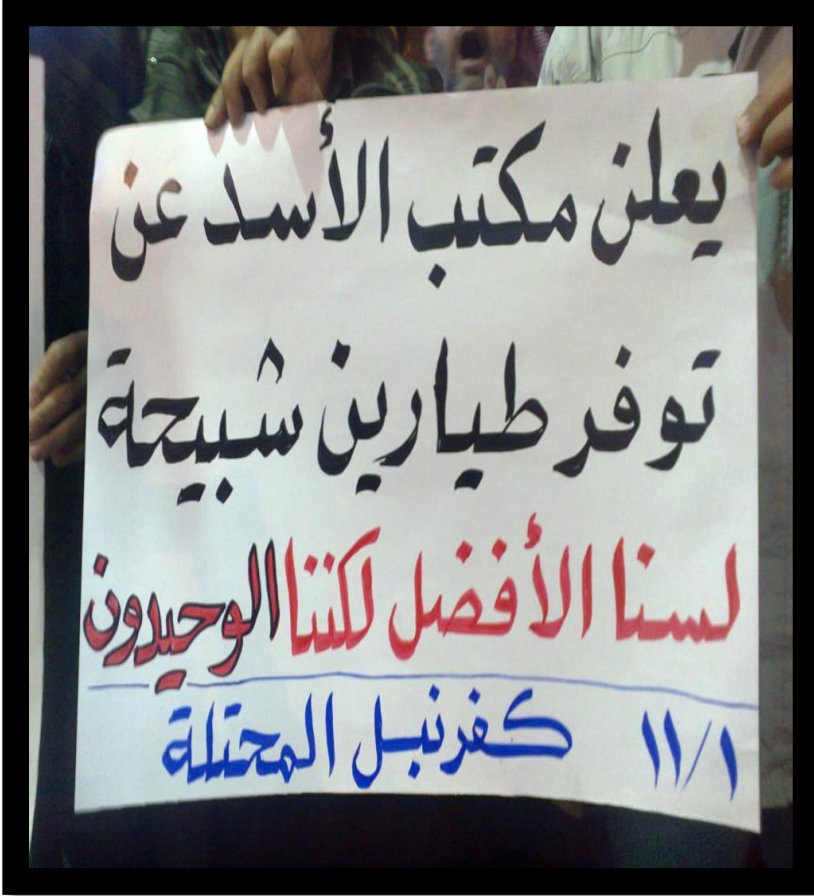 يعلن مكتب الأسد عن
توفر طيارين شبيحة
لسنا الأفضل لكننا الوحيدون
١١/١ كفرنبل المحتلة